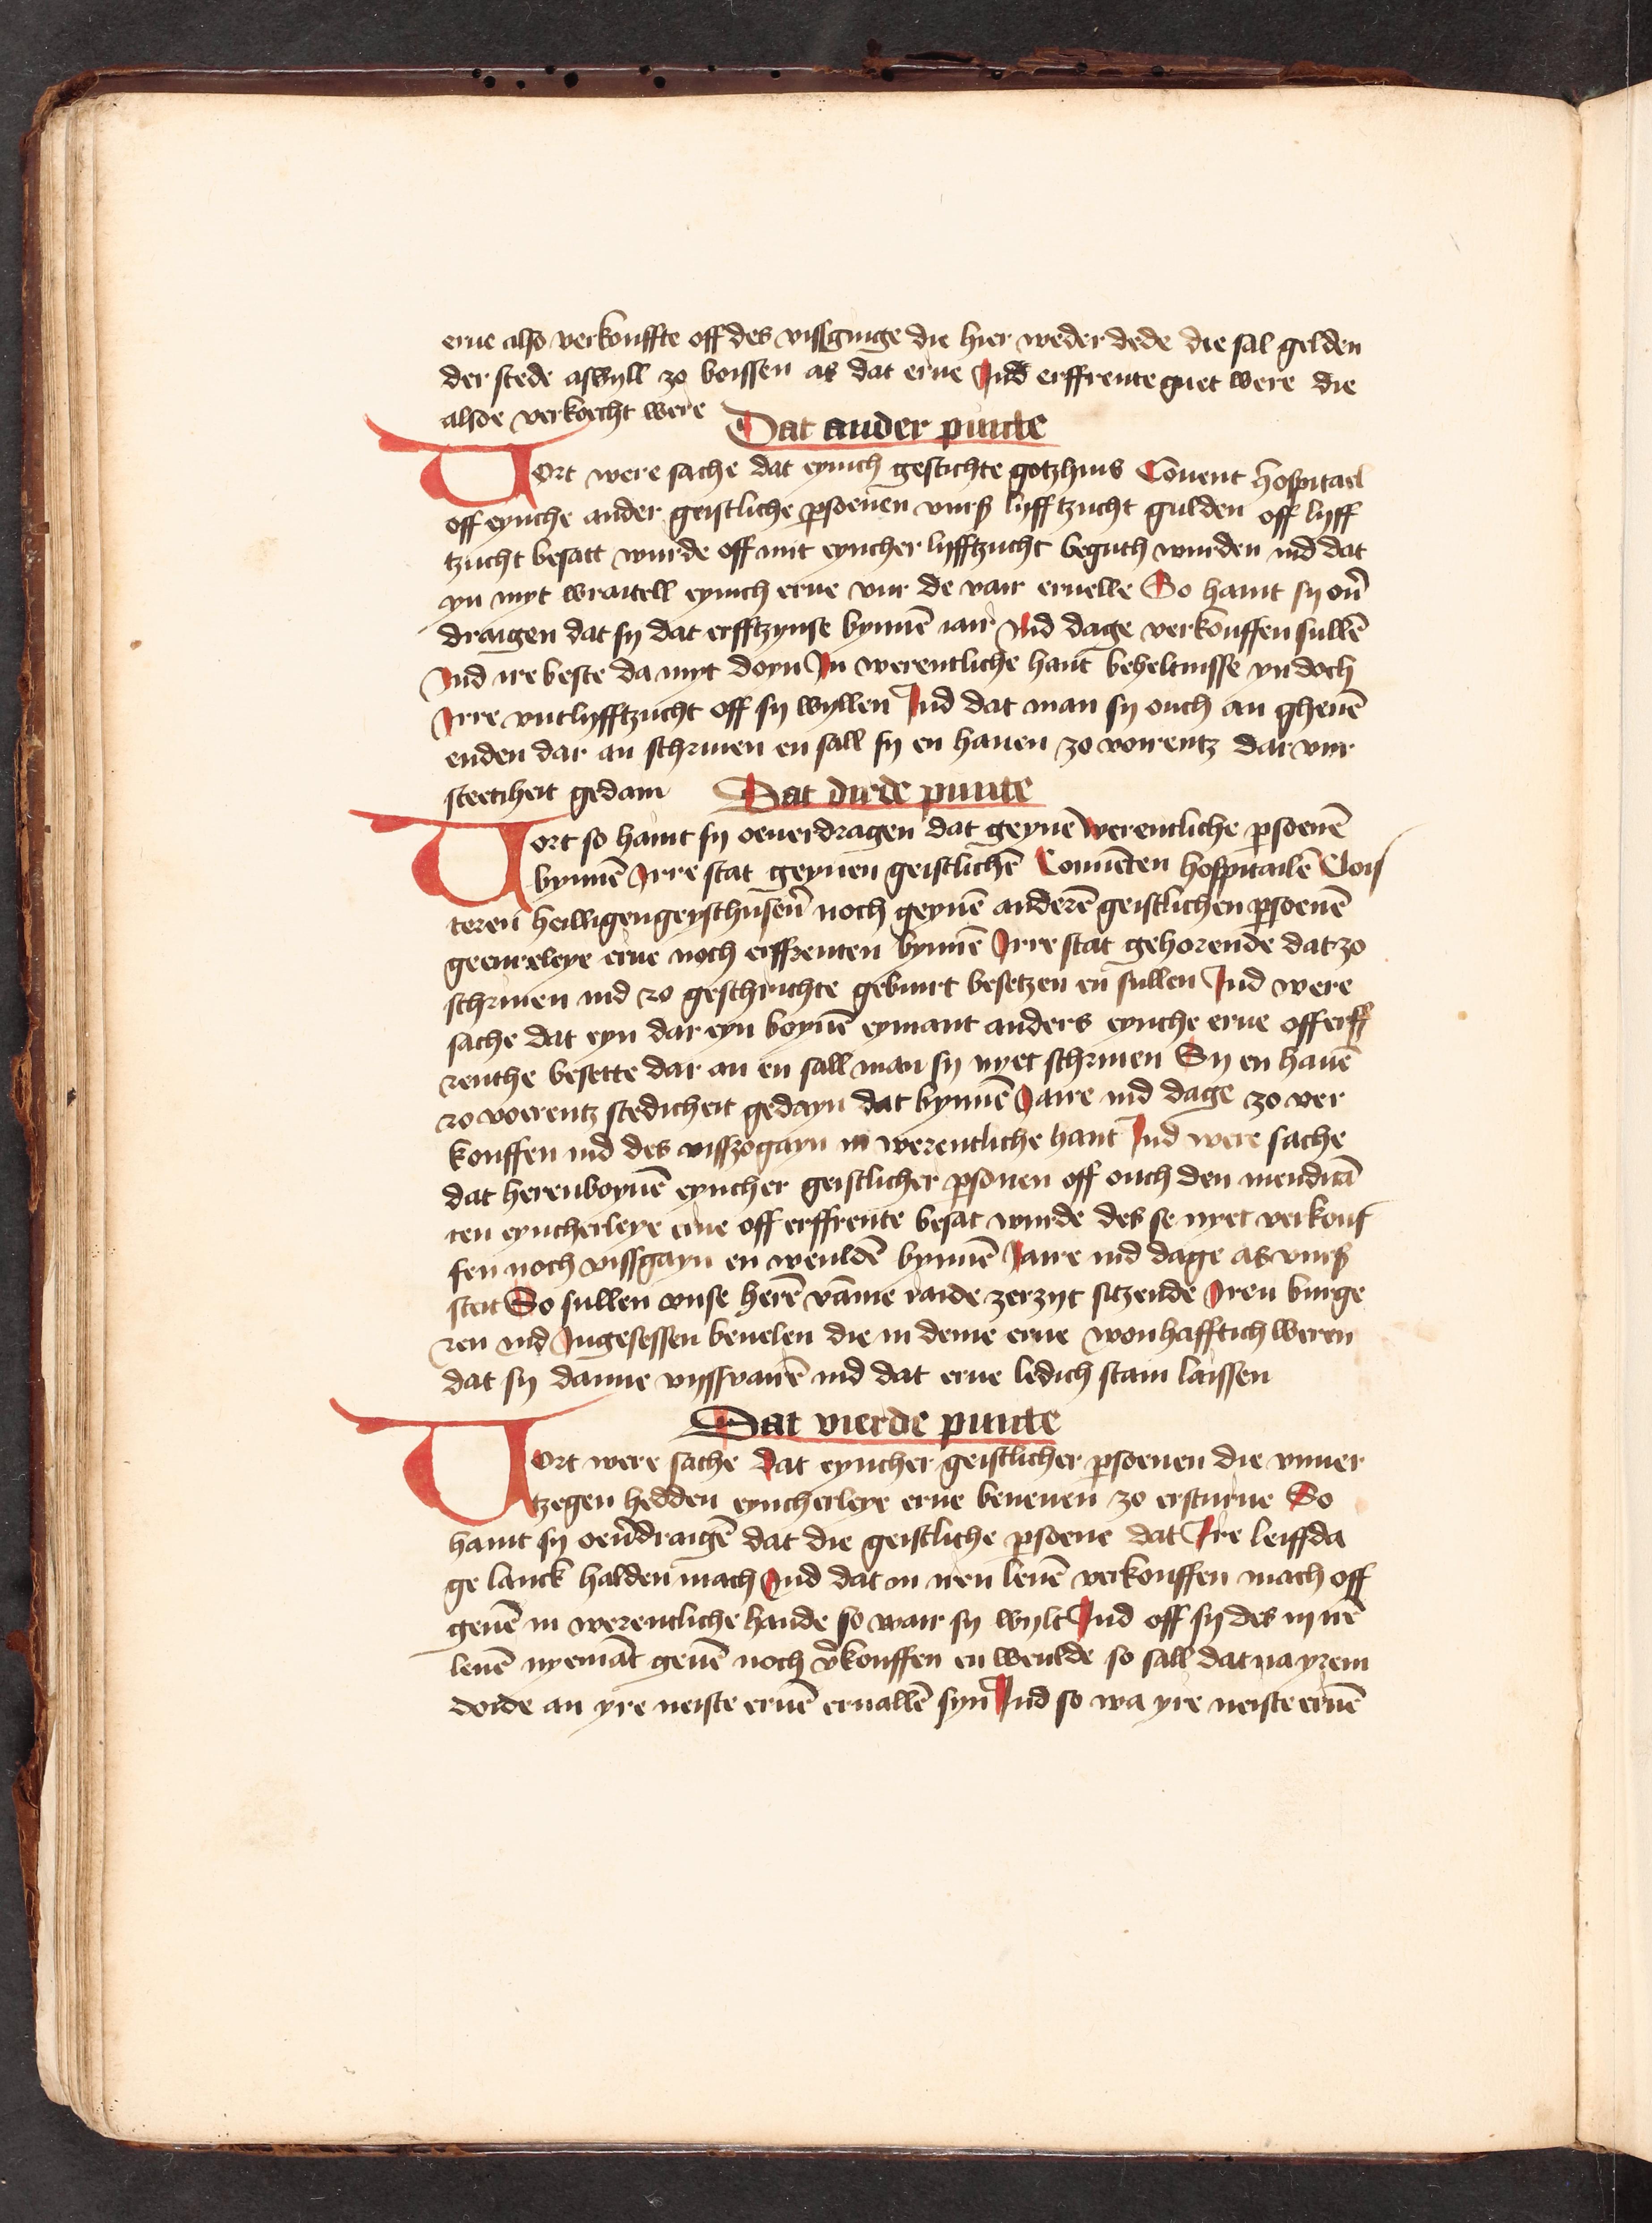 erue also verkouffte off des vissginge die hier weder dede die sal gelden
der stede asvyll zo boissen as dat erue Ind erffrente guet were die
alsoe verkoecht were Dat ander puncte
Vort were sache dat eynich gestichte gotzhuis Couent hospitael
off eynche ander geistliche psoenen vurß lyfftzucht gulden off lyff
tzucht besatt wurde off mit eyncher lyfftzucht beguth wurden ind dat
yn myt wraitell eynich erue vur de vair eruelle So haint sy ouͥ
draigen dat sy dat erfftzynse bynnē iair Ind dage verkouffen sullē
Ind ire beste da myt doyn In werentliche hant beheltnisse yn doch
Irre vutlyfftzucht off sy wyllen Ind dat man sy ouch an gheuē
enden dar an schriuen en sall sy en hauen zo voirentz dar vur
steetiheit gedain Dat diede puncte
Vort so haint sy oeuerdragen dat geynē werentliche psoenē
bynnē Irre stat geynen geistlichē Conuēten hospitailē Clois
teren heilligengeysthuseͥn noch geynē anderē geistlichen psoenē
geenreleye erue noch erffrenten bynnē Irre stat gehorende dat zo
schriuen ind zo geschrichte gebuirt besetzen en sullen Ind were
sache dat eyn dar eyn boynē eymant anders eynche erue off erff
renthe besette dar an en sall man sy nyet schriuen Sy en hauē
zo voerentz stedicheit gedayn dat bynnē Jaire ind dage zo ver
kouffen ind des visszogayn in werentliche hant Ind were sache
dat herenboynē eyncher geistlicher psonen off ouch den mendicā
ten eyncherleye erue off erffrente besat wurde des se nyet verkouf
fen noch vissgayn en weuldē bynnē Jaire ind dage as vurß
steit So sullen vnse herē vāme raide zerzyt sitzende Iren burge
ren ind Ingesessen beuelen die in deme erue wonhafftich weren
dat sy danne vyssvarē ind dat erue ledich stain laissen
Dat vierde puncte
Vort were sache dat eyncher geistlicher psoenen die vnuer
tzegen hedden eyncherleye erue beneuen zo ersturue So
haint sy oeuͥdraigē dat die geistliche psoene dat Ire leiffda
ge lanck halden mach Ind dat in iren leuē verkouffen mach off
geuē in werentliche hande so wair sy wylt Ind off sy des in irē
leuē nyemāt geuē noch v̓kouffen en weulde so sall dat na yrem
doide an yre neiste eruē eruallē syn Ind so wa yre neiste eruē